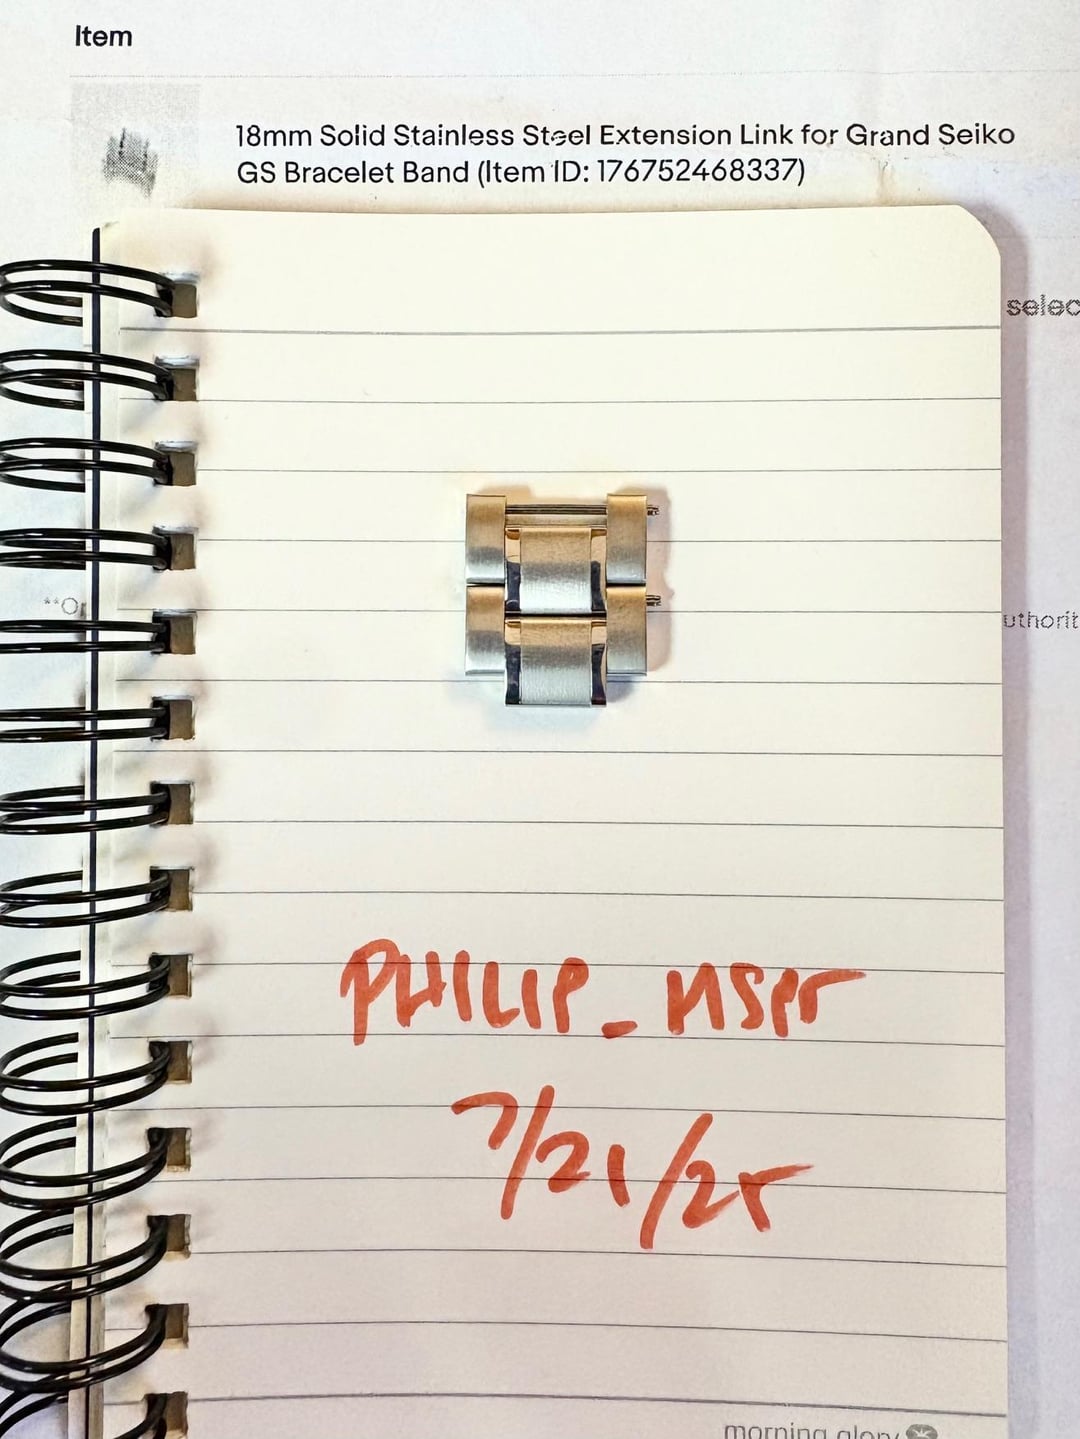 Item
18mm Solid Stainless Steel Extension Link for Grand Seiko
GS Bracelet Band (Item ID: 176752468337)
selec
**O
uthorit
PHILIP_
7/21/25
morning glory